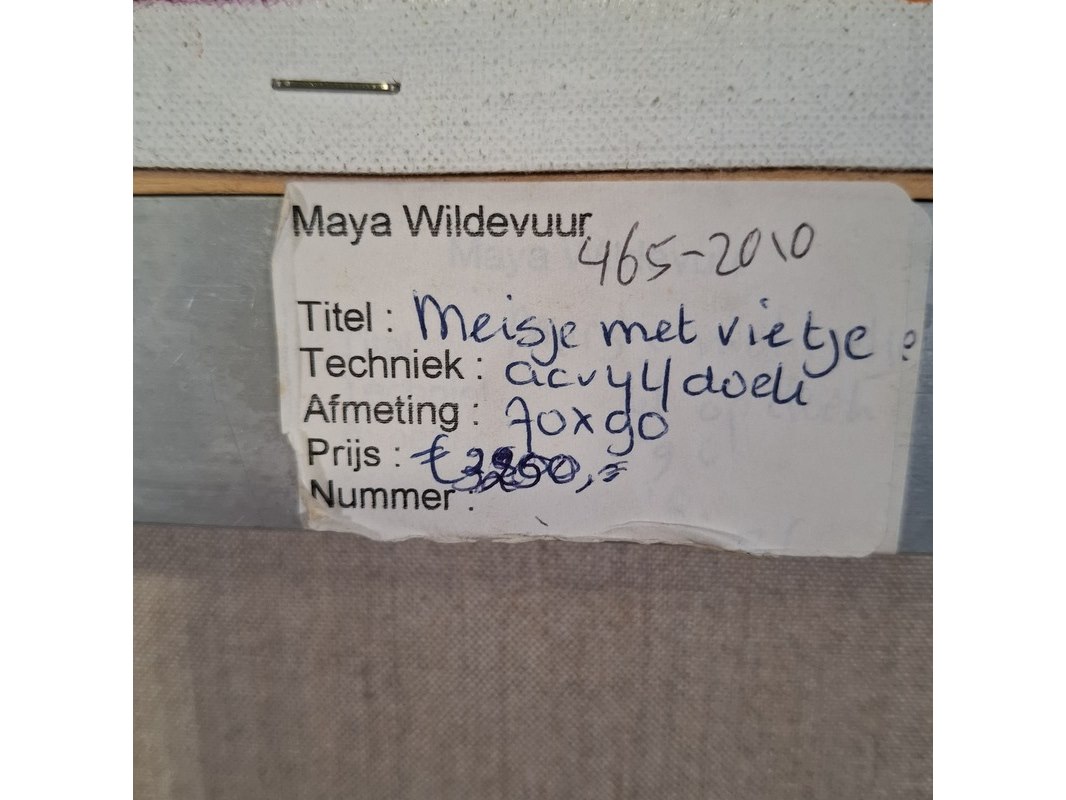 Maya Wildevuur
465-2010
Titel : Meisje met vietje
Techniek : acryl/doek
Afmeting : 70x90
Prijs : €
Nummer :